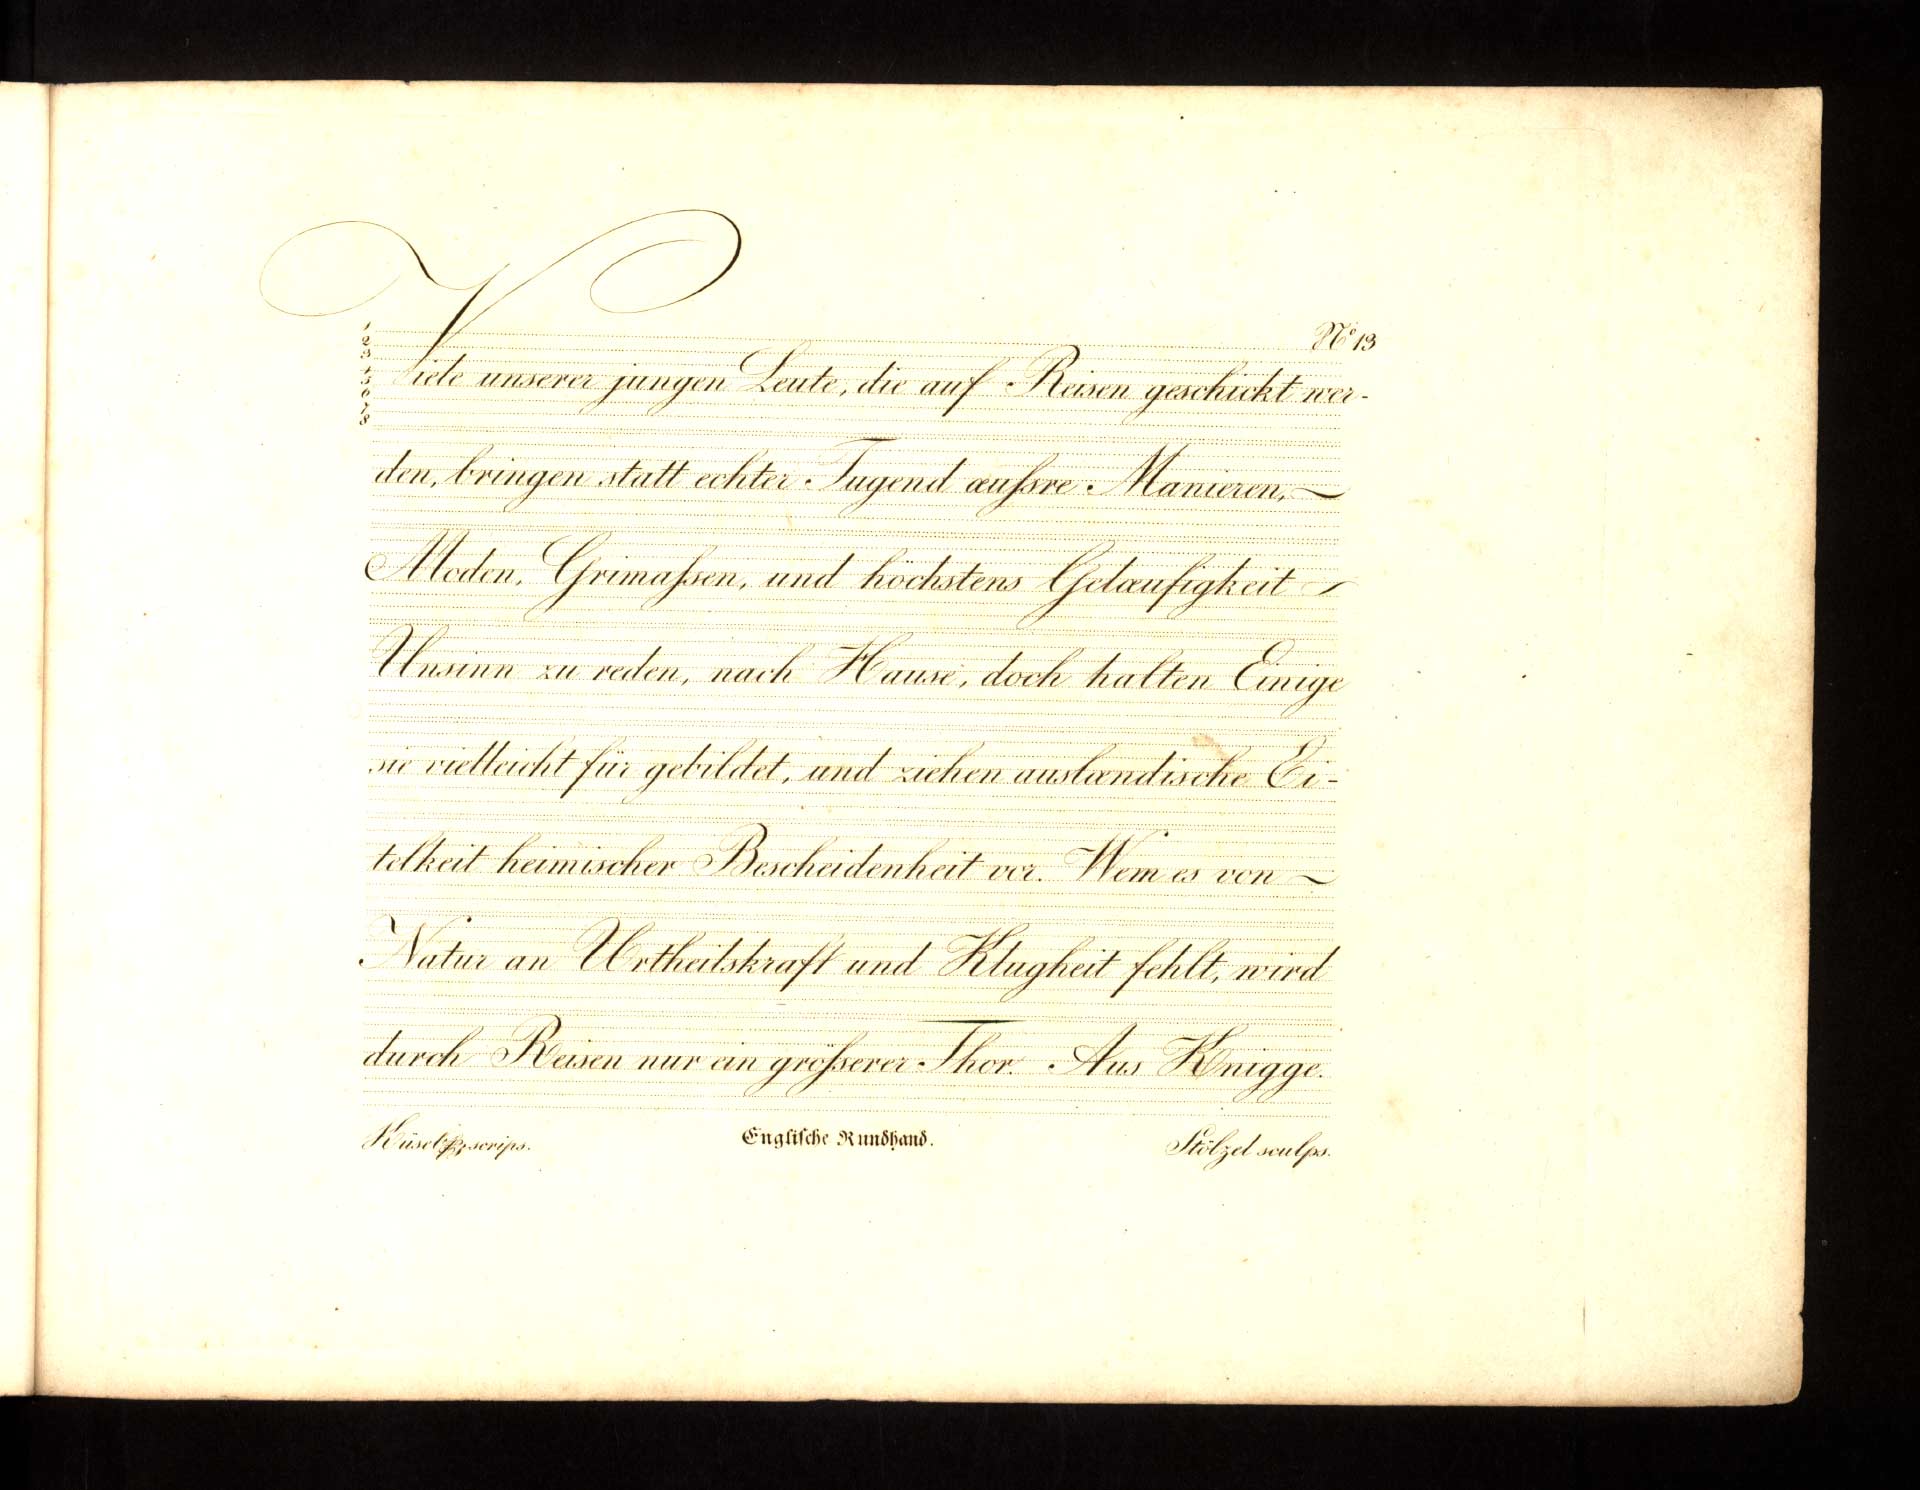 Nº 13
1
2
3
4
5
6
7
8
Viele unserer jungen Leute, die auf Reisen geschickt wer-
den, bringen statt echter Tugend æußsre Manieren,
Moden, Grimaßsen, und höchstens Gelæufigkeit
Unsinn zu reden, nach Hause, doch halten Einige
sie vielleicht für gebildet, und ziehen auslændische Ei-
telkeit heimischer Bescheidenheit vor. Wem es von
Natur an Urtheilskraft und Klugheit fehlt, wird
durch Reisen nur ein größserer Thor. Aus Knigge.
scrips. Englische Rundhand. Stölzel sculps.